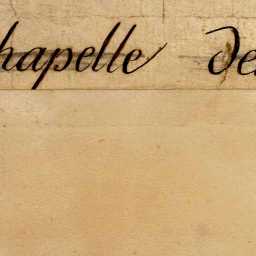 hapelle de